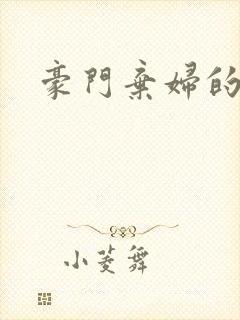 豪門棄婦的
小菱舞